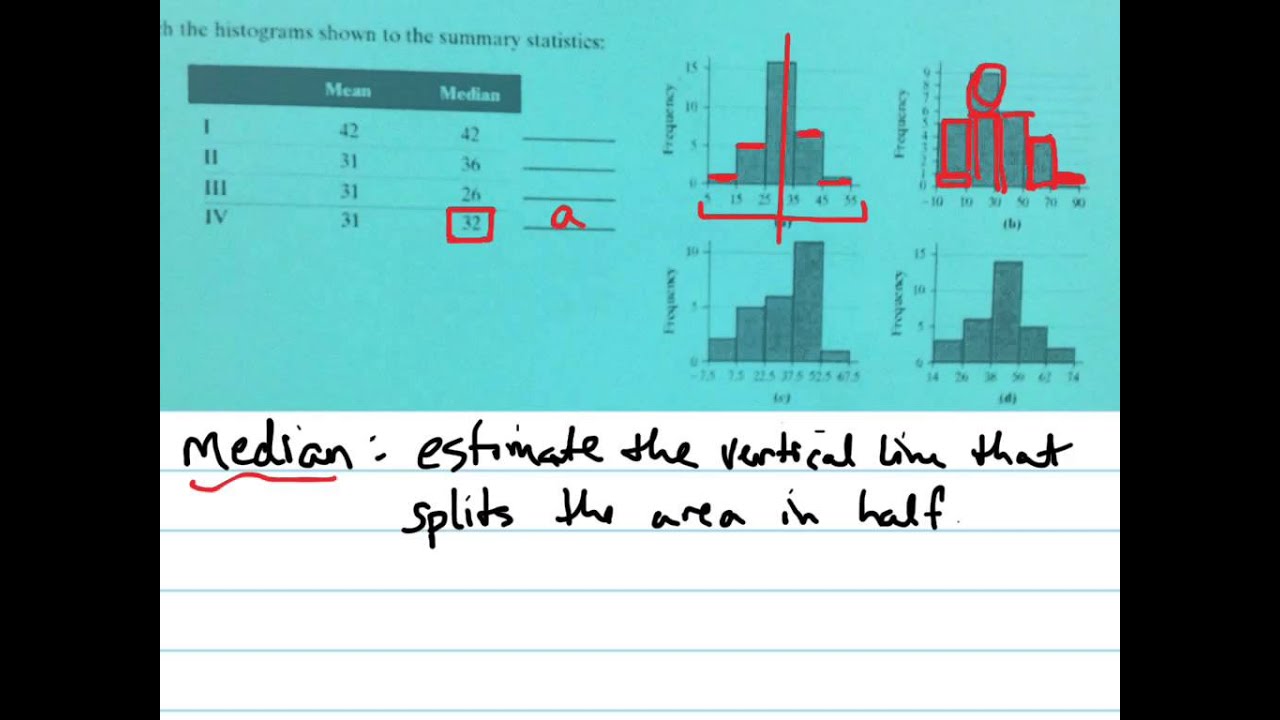 h the histograms shown to the summary statistics:
Mean Median
I 42 42
II 31 36
III 31 26
IV 31 32 a
Frequency
15
10
5
0
5 15 25 35 45 55
Frequency
-10 10 30 50 70 90
(b)
Frequency
10
5
0
-7.5 7.5 22.5 37.5 52.5 67.5
(c)
Frequency
15
10
5
0
14 26 38 50 62 74
(d)
Median: estimate the vertical line that
splits the area in half.